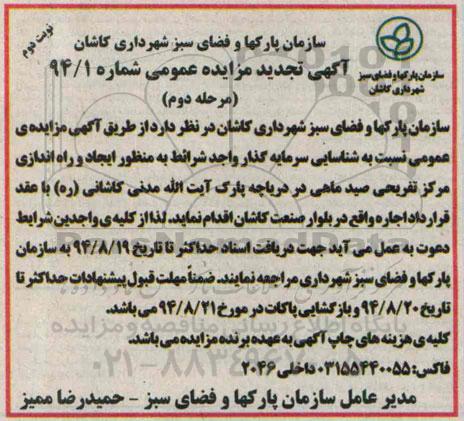 نوبت دوم
سازمان پارکها و فضای سبز شهرداری کاشان
آگهی تجدید مزایده عمومی شماره ۹۴/۱
(مرحله دوم)
سازمان پارکها و فضای سبز
شهرداری کاشان
سازمان پارکها و فضای سبز شهرداری کاشان در نظر دارد از طریق آگهی مزایده ی
عمومی نسبت به شناسایی سرمایه گذار واجد شرائط به منظور ایجاد و راه اندازی
مرکز تفریحی صید ماهی در دریاچه پارک آیت الله مدنی کاشانی (ره) با عقد
قرارداد اجاره واقع در بلوار صنعت کاشان اقدام نماید. لذا از کلیه ی واجدین شرایط
دعوت به عمل می آید جهت دریافت اسناد حداکثر تا تاریخ ۹۴/۸/۱۹ به سازمان
پارکها و فضای سبز شهرداری مراجعه نمایند. ضمناً مهلت قبول پیشنهادات حداکثر تا
تاریخ ۹۴/۸/۲۰ و بازگشایی پاکات در مورخ ۹۴/۸/۲۱ می باشد.
کلیه ی هزینه های چاپ آگهی به عهده برنده مزایده می باشد.
فاکس: ۰۳۱۵۵۴۴۰۰۵۵ داخلی ۲۰۴۶
مدیر عامل سازمان پارکها و فضای سبز - حمیدرضا ممیز
پایگاه اطلاع رسانی مناقصه و مزایده
۰۲۱-۸۸۳۴۹۶۷۰